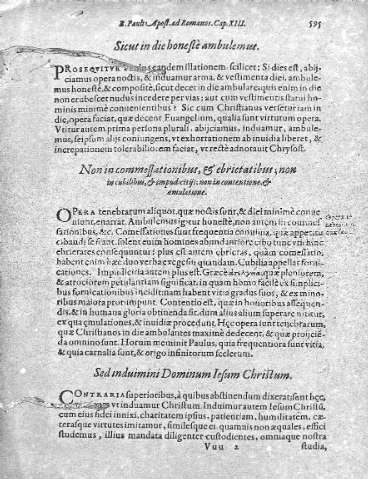 B. Pauli Apost. ad Romanos. Cap. XIII. 595
Sicut in die honestè ambulemus.
PROSEQUITUR eandem illationem. scilicet: Si dies est, abij-
ciamus opera noctis, & induamur arma, & vestimenta diei. ambule-
mus honestè, & compositè, sicut decet in die ambulare: quis enim in die
non erubescet nudus incedere per vias; aut cum vestimentis statui ho-
minis minimè conuenientibus? Sic cum Christianus versetur iam in
die, opera faciat, quæ decent Euangelium, qualia sunt virtutum opera.
Vtitur autem prima persona plurali. abijciamus, induamur, ambule-
mus, seipsum alijs coniungens, vt exhortationem ab inuidia liberet, &
increpationem tolerabiliorem faciat, vt rectè adnotauit Chrysost.
Non in commessationibus, & ebrietatibus; non
in cubilibus, & impudicitijs: non in contentione, &
æmulatione.
OPERA tenebrarum aliquot, quæ noctis sunt, & diei minimè conue
niunt, enarrat. Ambulemus igitur honestè, non autem in commes
sationibus, &c. Comessationes sunt frequentia conuiuia, quæ appetitu
cibandi se fiunt. solent enim homines abundantiore cibo tunc vti: hinc
ebrietates consequuntur: plus est autem ebrietas, quàm comessatio.
habent enim hæc duo verba regressum quendam. Cubilia appellat forni-
cationes. Impudicitia autem plus est. Græcè quæ pleniorem,
& atrociorem petulantiam significat. in quam homo facilè ex simplici-
bus fornicationibus incidit. nam habent vitia gradus suos, & ex mino-
ribus maiora prorumpunt. Contentio est, quæ in honoribus assequen-
dis, & in humana gloria obtinenda sit. dum alius alium superare nititur,
ex qua æmulationes, & inuidiæ procedunt. Hęc opera sunt tenebrarum,
quæ Christianos in die ambulantes maximè dedecent, & quæ proijcie̅-
da omnino sunt. Horum meminit Paulus, quia frequentiora sunt vitia,
& quia carnalia sunt, & origo infinitorum scelerum.
Sed induimini Dominum Iesum Christum.
CONTRARIA superioribus, à quibus abstinendum dixerat. sunt hęc,
vt induamur Christum. Induimur autem Iesum Christū,
cum eius fidei innixi, charitatem ipsius, patientiam, humilitatem, cæ-
terasque virtutes imitamur, similesque ei, quamuis non æquales, effici
studemus, illius mandata diligenter custodientes, omniaque nostra
Vuu 2 studia,